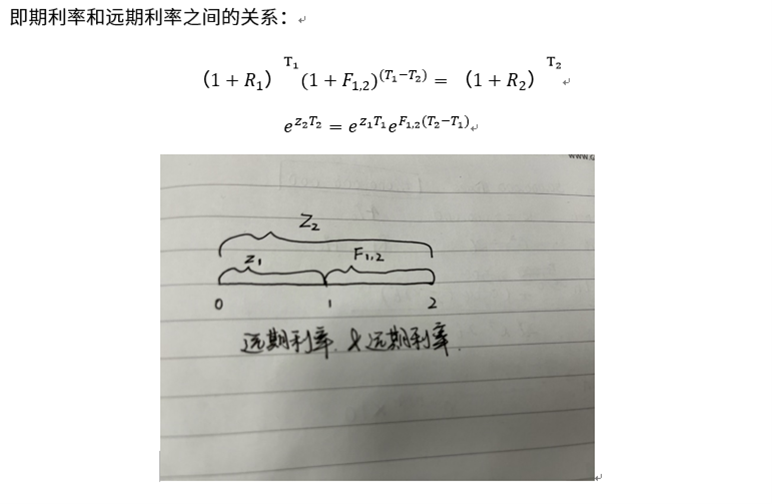 即期利率和远期利率之间的关系：
（1 + R₁）^T₁ (1 + F₁,₂)^(T₁−T₂) = （1 + R₂）^T₂
e^(z₂T₂) = e^(z₁T₁)e^(F₁,₂(T₂−T₁))
www.
Z₂
z₁ F₁,₂
0 1 2
远期利率 & 远期利率.